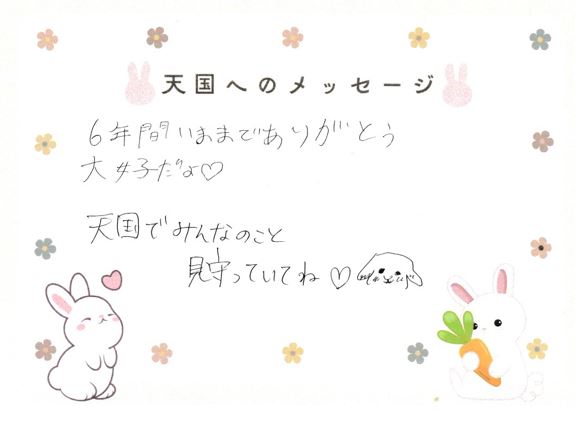 天国へのメッセージ
6年間いままでありがとう
大好だよ♡
天国でみんなのこと
見守っていてね♡